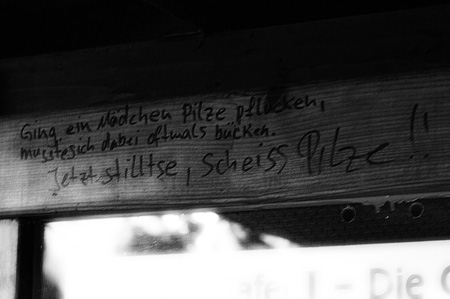 Ging ein Mädchen Pilze pflücken,
musste sich dabei oftmals bücken.
Jetzt stilltse, Scheiss Pilze!!
! - Die